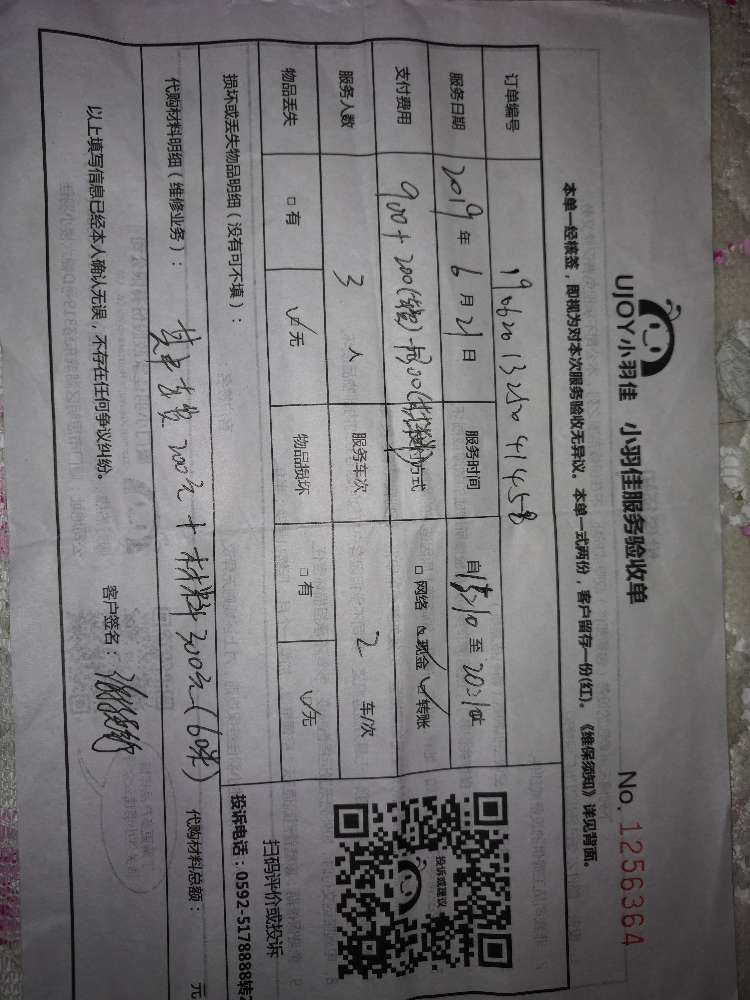 UJOY小羽佳 小羽佳服务验收单 No. 1256364
本单一经核签，即视为对本次服务验收无异议。本单一式两份，客户留存一份(红)。《维保须知》详见背面。
订单编号 1906201325041458
服务日期 2019年6月21日 服务时间 自15:10至20:21止
支付费用 900+200( )+300(材料) 支付方式 □网络 ☑现金 ☑转账
服务人数 3人 服务车次 2车/次
物品丢失 □有 ☑无 物品损坏 □有 ☑无
损坏或丢失物品明细（没有可不填）：
代购材料明细（维修业务）： 其中 200元+材料300元(6米) 代购材料总额： 元
以上填写信息已经本人确认无误，不存在任何争议纠纷。 客户签名：
投诉或建议
扫码评价或投诉
投诉电话：0592-5178888转2